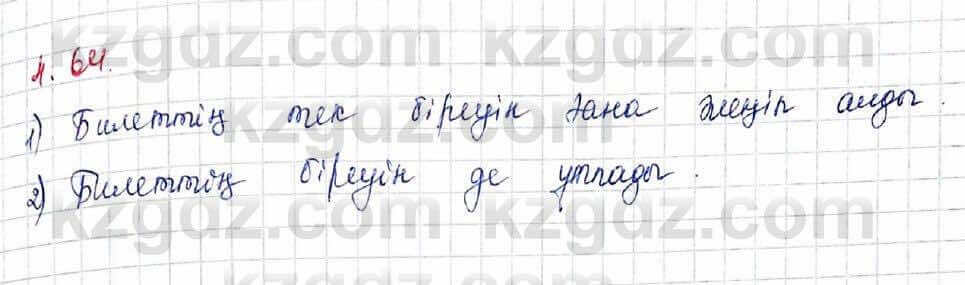 kzgdz.com kzgdz.com
1.64.
1) Билеттің тек біреуін ғана жеңіп алды.
2) Билеттің біреуін де ұтпады.
kzgdz.com kzgdz.com
kzgdz.com kzgdz.com